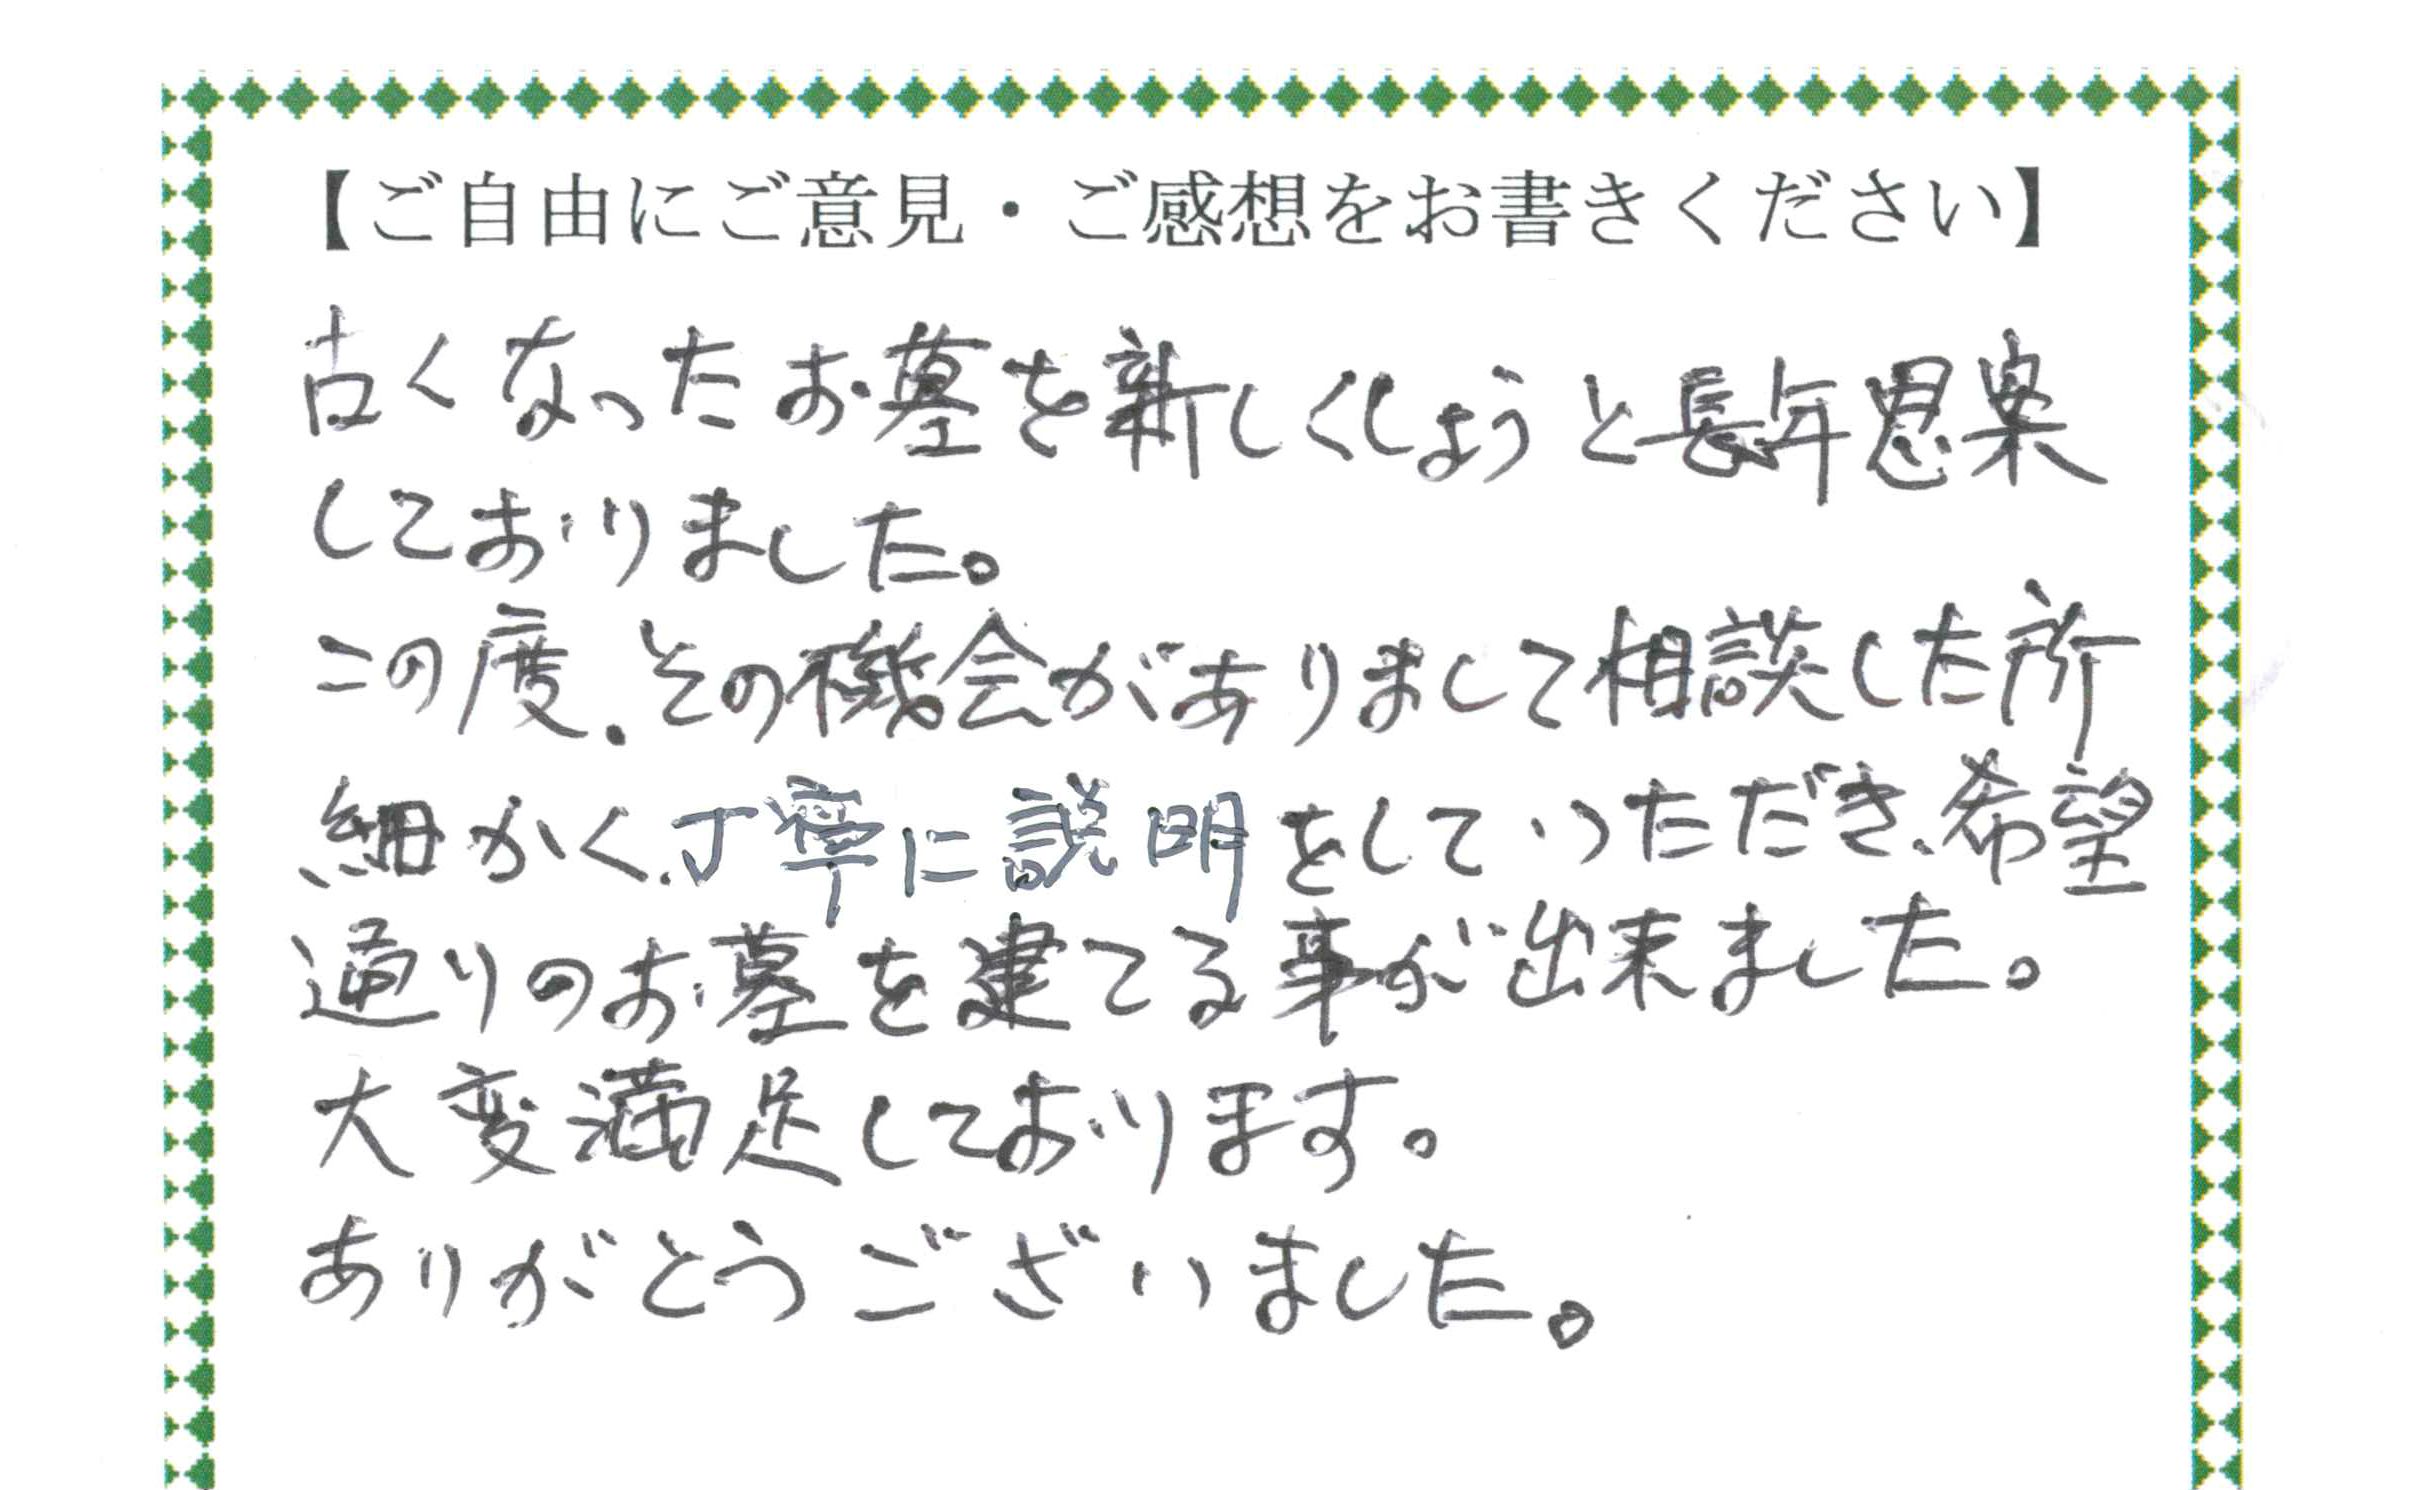 【ご自由にご意見・ご感想をお書きください】
古くなったお墓を新しくしようと長年思案
しておりました。
この度、その機会がありまして相談した所
細かく、丁寧に説明をしていただき、希望
通りのお墓を建てる事が出来ました。
大変満足しております。
ありがとうございました。